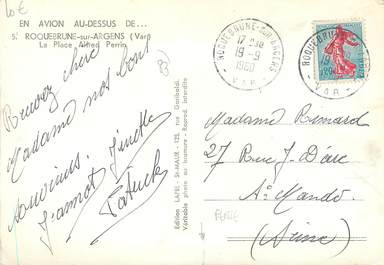 10€
EN AVION AU-DESSUS DE...
5. ROQUEBRUNE-sur-ARGENS (Var)
La Place Alfred Perrin
Recevez chère
Madame nos bons
souvenirs.
Jeannot Ginette
Patrick
Edition LAPIE - St-MAUR - 123, rue Garibaldi.
Véritable photo au bromure - Reprod. interdite
ROQUEBRUNE-SUR-ARGENS
17H30
19-9
1960
VAR
ROQUEBRUNE
19
VAR
Madame Renard
27 Rue J. D'arc
St Mandé.
(Seine)